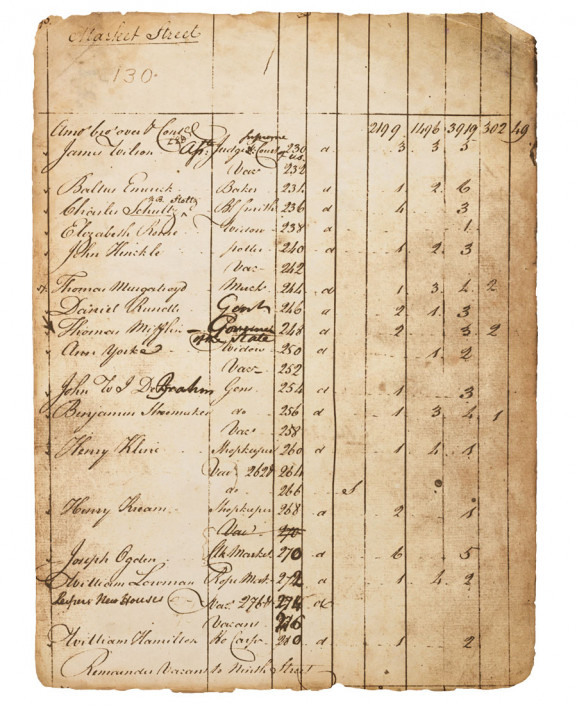 Market Street
130.
Amot bro't over & Cons 2199 1496 3919 302 49
James Wilson Judge Supreme Court of U.S. 230 d 3 3 5
Vac 232
Baltus Emrick Baker 234 d 1 2 6
Charles Schultz Bl Smith 236 d 4 3
Elizabeth Widow 238 d 1
John Hinckle potter 240 d 1 2 3
Vac 242
Thomas Murgatroyd Mercht 244 d 1 3 4 2
Daniel Rundle Gent 246 d 2 1 3
Thomas Mifflin Governor of the State 248 d 2 3 2
Ann Yorke Widow 250 d 1 2
Vac 252
John W I De Brahm Gen 254 d 1 3
Benjamin Shoemaker do 256 d 1 3 4 1
Vac 258
Henry Kline Shopkeeper 260 d 1 4 1
Vac 262 & 264
do 266
Henry Shopkeeper 268 d 2 1
Vac 270
Joseph Ogden Market 270 d 6 5
William Lowman Rope Mak 272 d 1 4 2
New Houses Vac 274 d
Vacant 276
William Hamilton Ho Carp 280 d 1 2
Remainder Vacant to Ninth Street